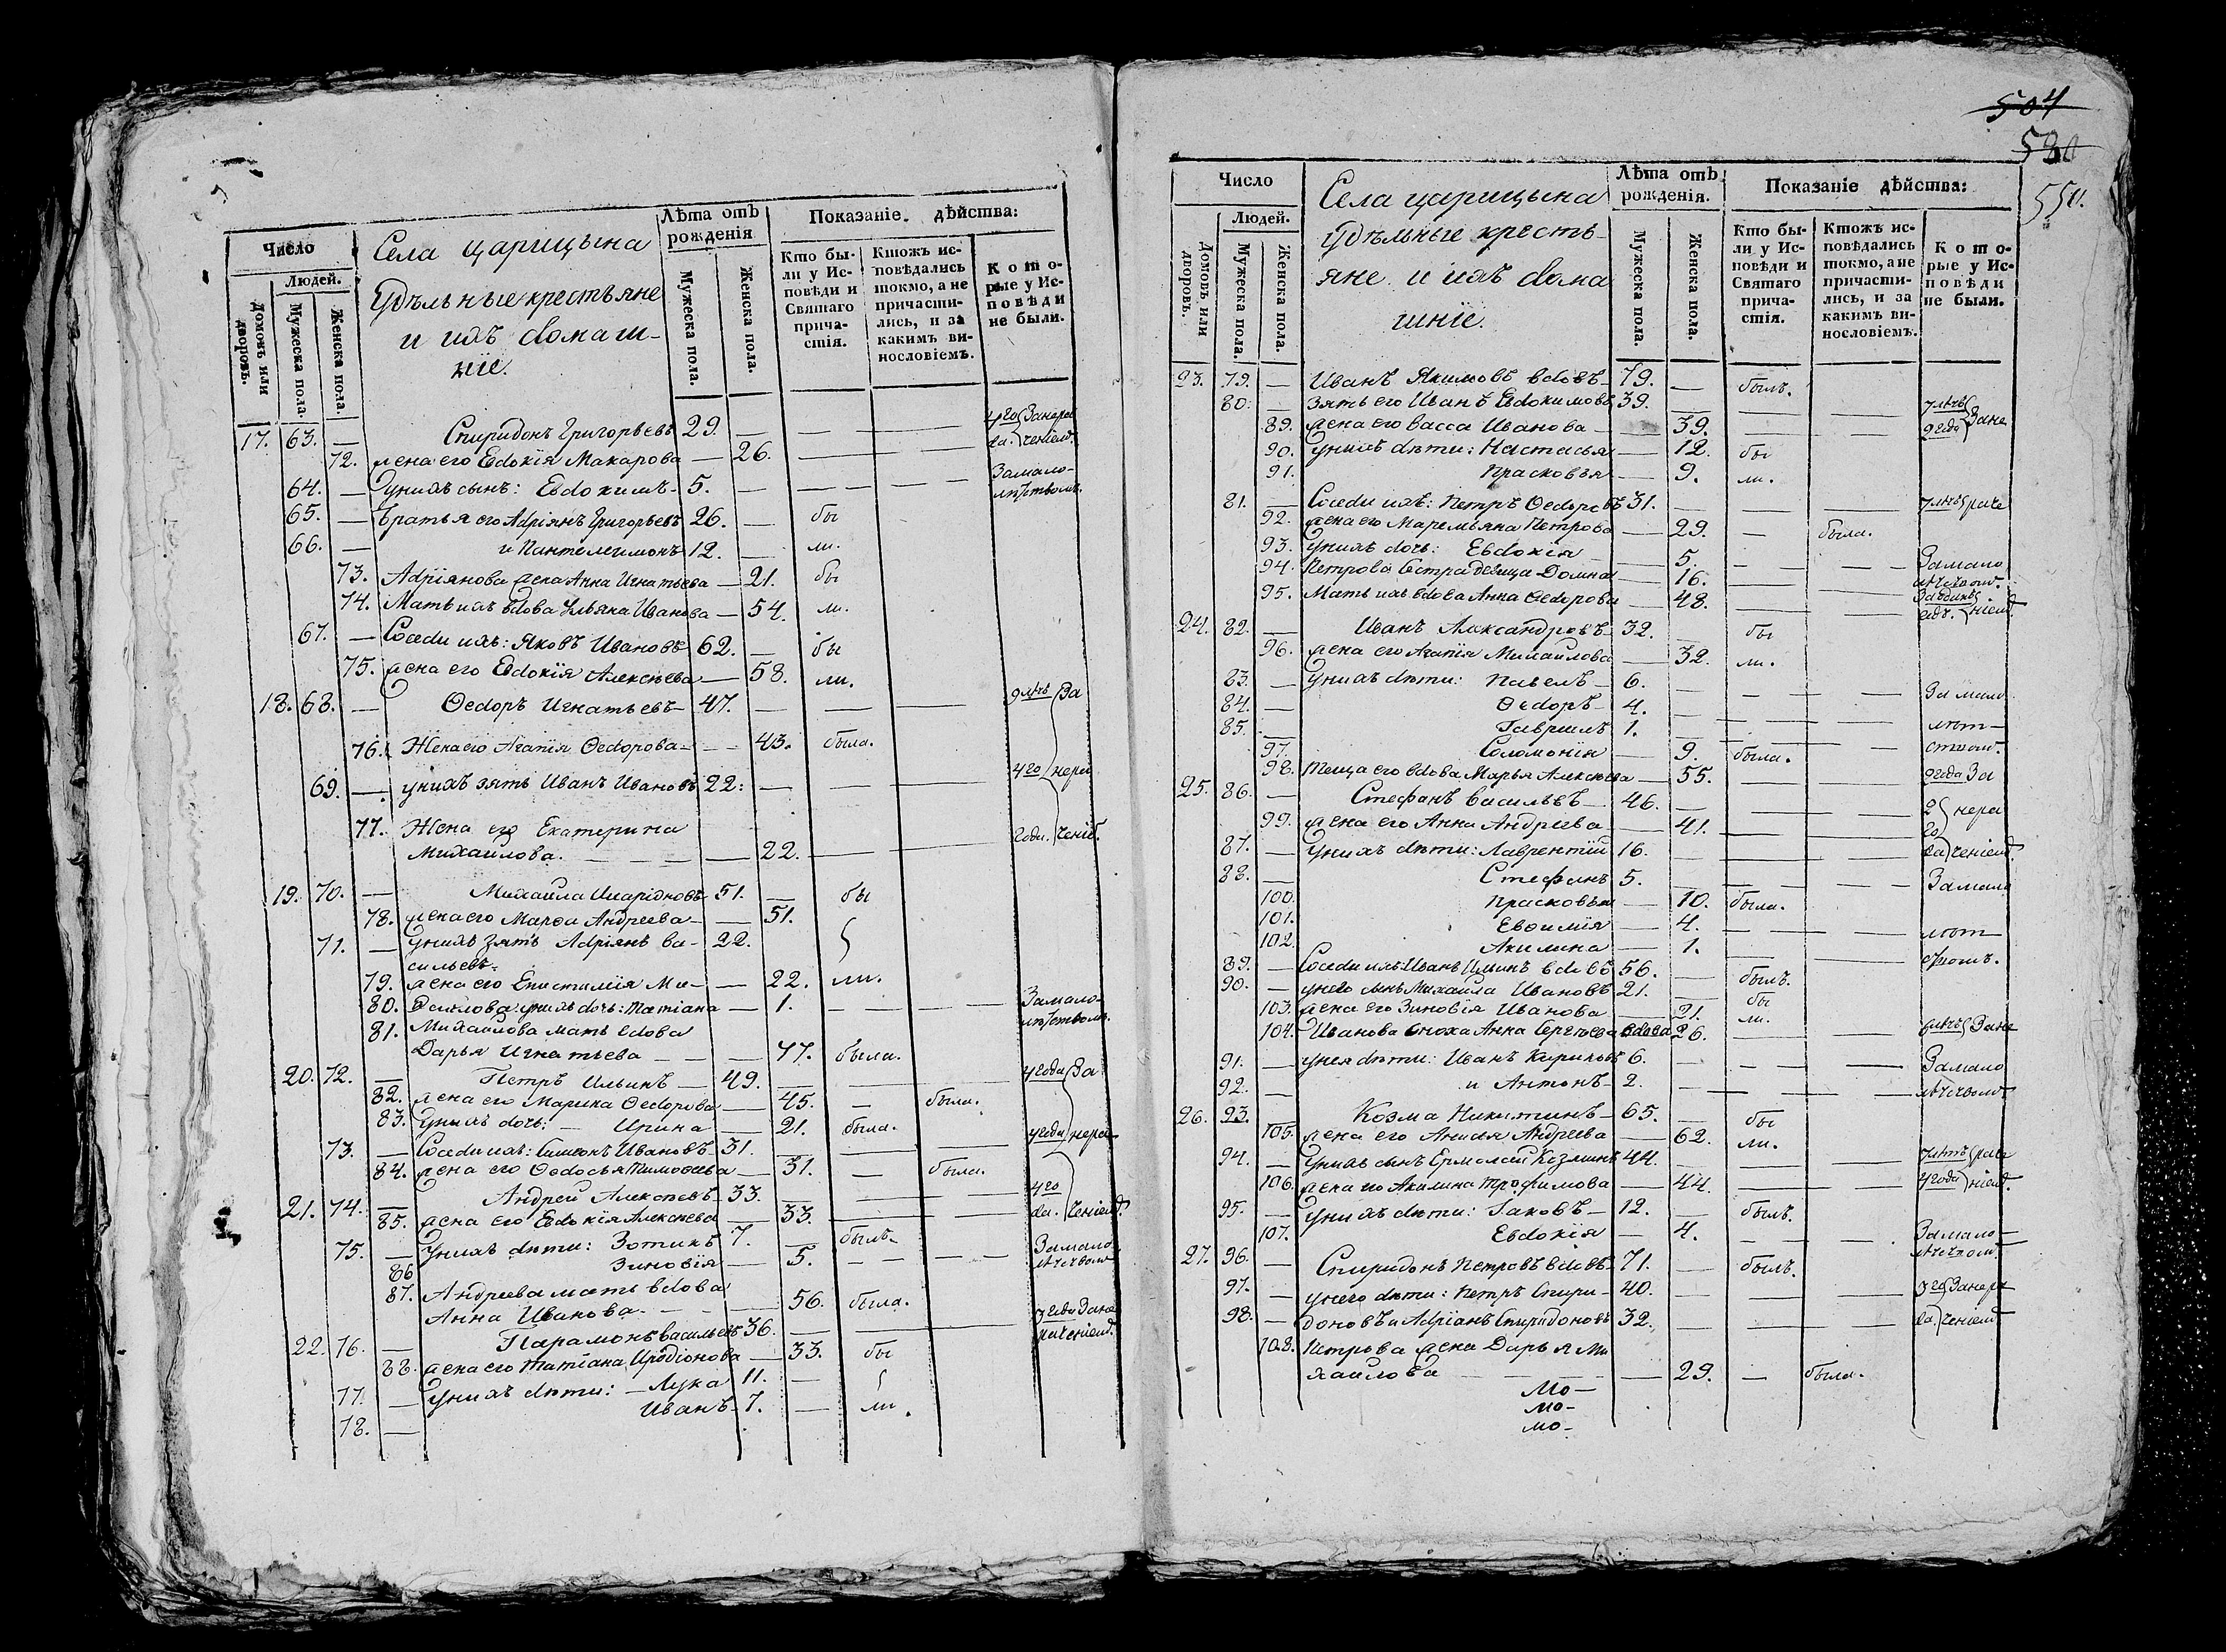 Число
Людей.
Домовъ или дворовъ.
Мужеска пола.
Женска пола.
Села царицына
Удѣльныекрестьяне
и ихъ домаш-
ніе.
Лѣта отъ рожденія
Мужеска пола.
Женска пола.
Показаніе дѣйства:
Кто бы-
ли у Ис-
повѣди и
Святаго
прича-
стія.
Ктожъ ис-
повѣдались
токмо, а не
причасти-
лись, и за
какимъ ви-
нословіемъ.
Кото-
рые у Ис-
повѣди
не были.
17. 63. — Спиридонъ Григорьевъ 29. — — — 4 го Занера
72. жена его Евдокія Макарова — 26. — — да. ченіем.
64. — Унихъ сынъ: Евдокимъ 5. — — — Замало-
лѣтством.
65. — Братья его Адріянъ Григорьевъ 26. — бы
66. — и Пантелеимонъ 12. — ли.
73. Адріянова жена Анна Игнатьева — 21. бы
74. Мать ихъ вдова Ульяна Иванова — 54. ли.
67. — Соседи ихъ: Яковъ Ивановъ 62. — бы
75. жена его Евдокія Алексѣева — 58. ли.
18. 68. — Ѳедоръ Игнатьевъ 47. — — — 9 лѣтъ За
76. Жена его Агапія Ѳедорова — 43. была.
69. — унихъ зять Иванъ Ивановъ 22. — — — 4 го нера
77. Жена его Екатерина
Михаилова. — 22. — — 2 годи. ченіе.
19. 70. — Михаила Иларіоновъ 51. — бы
78. жена его Марѳа Андреева — 51.
71. — Унихъ зять Адріянъ Ва- 22.
сильевъ.
79. жена его Епистимія Ми- — 22. ли.
80. хаилова унихъ дочь: Татіана — 1. — — — Замало-
лѣтством.
81. Михаилова мать вдова
Дарья Игнатьева — 77. была.
20. 72. — Петръ Ильинъ 49. — — — 4 годи За
82. жена его Марина Ѳедорова — 45. — была.
83. Унихъ дочь: Ирина — 21. была.
73. — Соседи ихъ: Симеонъ Ивановъ 31. — — — 4 годи нера
84. жена его Ѳедосья Тимоѳеева — 31. — была.
21. 74. — Андрей Алексѣевъ 33. — — — 4 го
85. жена его Евдокія Алексѣева — 33. — — да. ченіем.
75. — Унихъ дѣти: Зотикъ 7. — былъ.
86. Зиновія — 5. — — — Замало
лѣтством
87. Андреева мать вдова
Анна Иванова. — 56. была.
22. 76. — Парамонъ Васильевъ 36. — — — 3 годи Зане
раченіем.
88. жена его Татіана Иродіонова — 33. бы
77. — Унихъ дѣти: Лука 11. —
78. — Иванъ 7. — ли.
504
530
550.
Число
Людей.
Домовъ или дворовъ.
Мужеска пола.
Женска пола.
Села царицына
Удѣльные кресть-
яне и ихъ дома
шніе.
Лѣта отъ рожденія.
Мужеска пола.
Женска пола.
Показаніе дѣйства:
Кто бы-
ли у Ис-
повѣди и
Святаго
прича-
стія.
Ктожъ ис-
повѣдались
токмо, а не
причасти-
лись, и за
какимъ ви-
нословіемъ.
Кото-
рые у Ис-
повѣди
не были.
23. 79. — Иванъ Якимовъ вдовъ 79. — былъ.
80. — Зять его Иванъ Евдокимовъ 39. — — — 7 лѣтъ
89. жена его Васса Иванова — 39. — — 2 года Зане
90. Унихъ дѣти: Настасья — 12. бы
91. Прасковья — 9. ли.
81. — Соседи ихъ: Петръ Ѳедоровъ 31. — — — 7 лѣтъ раче
92. жена его Маремьяна Петрова — 29. — была.
93. Унихъ дочь: Евдокія — 5. — — — Замало
94. Петрова сестра девица Домна — 16. — —
95. Мать ихъ вдова Анна Ѳедорова — 48. — — ніем.
24. 82. — Иванъ Александровъ 32. — бы
96. жена его Агапія Михайлова — 32. ли.
83. — Унихъ дѣти: Павелъ 6. — — — За мало
84. — Ѳедоръ 4. — — — лѣт-
85. — Гавриилъ 1. — — — ством.
97. Соломонія — 9. была.
98. Теща его вдова Марья Алексеева — 55. — — 2 года За
25. 86. — Стефанъ Васильевъ 46. — — — 2 нера
99. жена его Анна Андреева — 41. — — го
87. — Унихъ дѣти: Лаврентій 16. — — — да ченіем.
88. — Стефанъ 5. — — — Замало
100. Прасковья — 10. была.
101. Евѳимія — 4. — — — лѣт-
102. Акилина — 1. — — ством.
89. — Соседи ихъ Иванъ Ильинъ вдовъ 56. — былъ.
90. — унего сынъ Михаила Ивановъ 21. — бы
103. жена его Зиновія Иванова — 21. ли.
104. Иванова сноха Анна Сергѣева вдова 26. — — 6 лѣтъ Зане
91. — унея дѣти: Иванъ Кириловъ 6. — — — Замало
92. — и Антонъ 2. — — — лѣтством
26. 93. — Козма Никитинъ 65. — бы
105. жена его Анисія Андреева — 62. ли.
94. — Унихъ сынъ Ермолай Козминъ 44. — — — 7 лѣтъ раче
106. жена его Акилина Трофимова — 44. — — 4 года ніем.
95. — Унихъ дѣти: Іаковъ 12. — былъ.
107. Евдокія — 4. — — — Замало-
лѣтством.
27. 96. — Спиридонъ Петровъ вдовъ 71. — былъ.
97. — унего дѣти: Петръ Спири- 40. — — — 3 го Занера
98. — доновъ и Адріанъ Спиридоновъ 32. — — — да. ченіем
108. Петрова жена Дарья Ми
хаилова — 29. — была.
Мо-
мо-
мо-